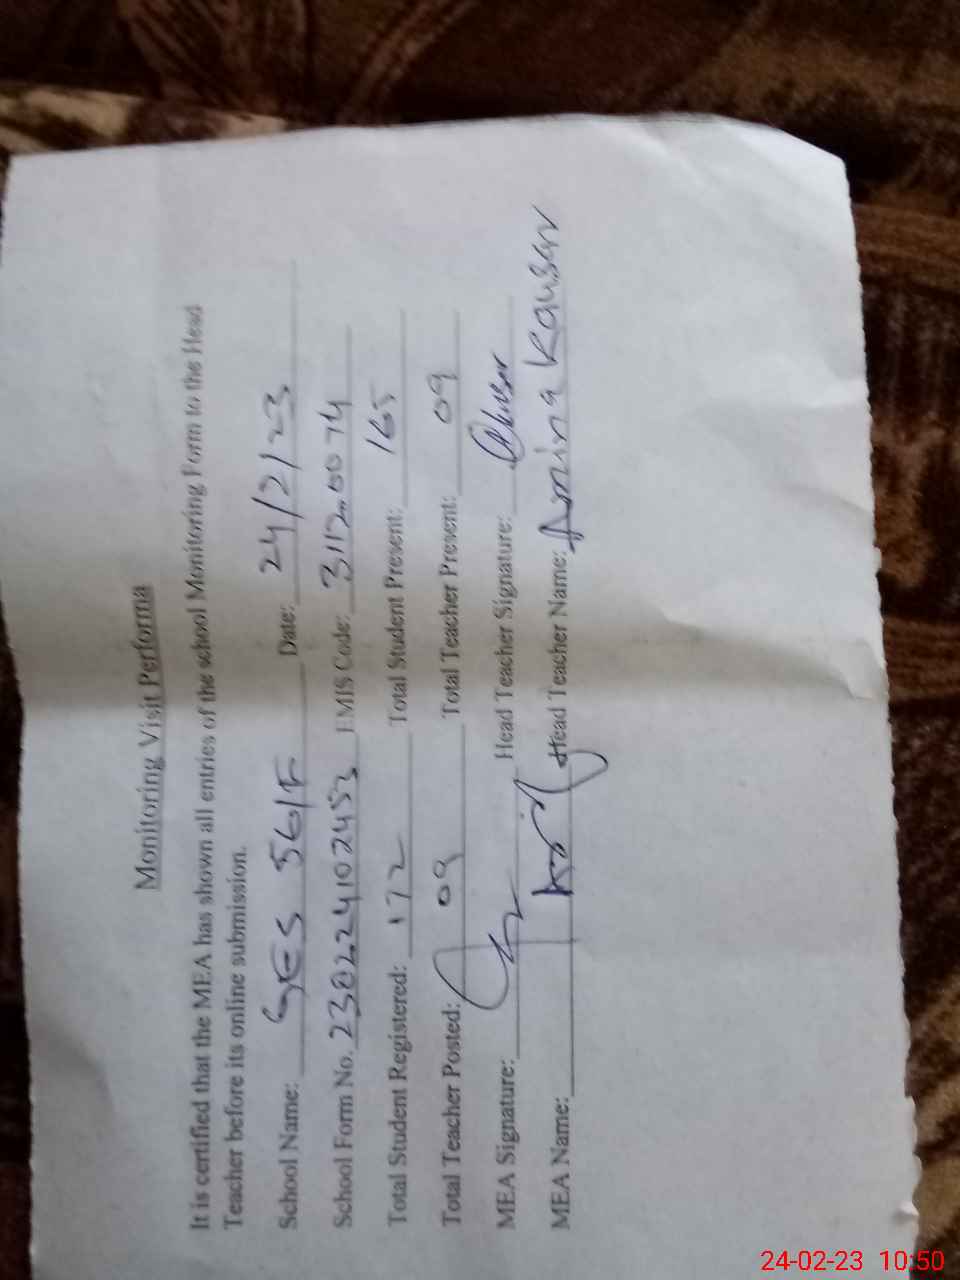 Monitoring Visit Performa
It is certified that the MEA has shown all entries of the school Monitoring Form to the Head
Teacher before its online submission.
School Name: GES 561F Date: 24/2/23
School Form No. 230224102453 EMIS Code: 31120074
Total Student Registered: 172 Total Student Present: 165
Total Teacher Posted: 09 Total Teacher Present: 09
MEA Signature: Head Teacher Signature:
MEA Name: Head Teacher Name: Amina Kausar
24-02-23 10:50